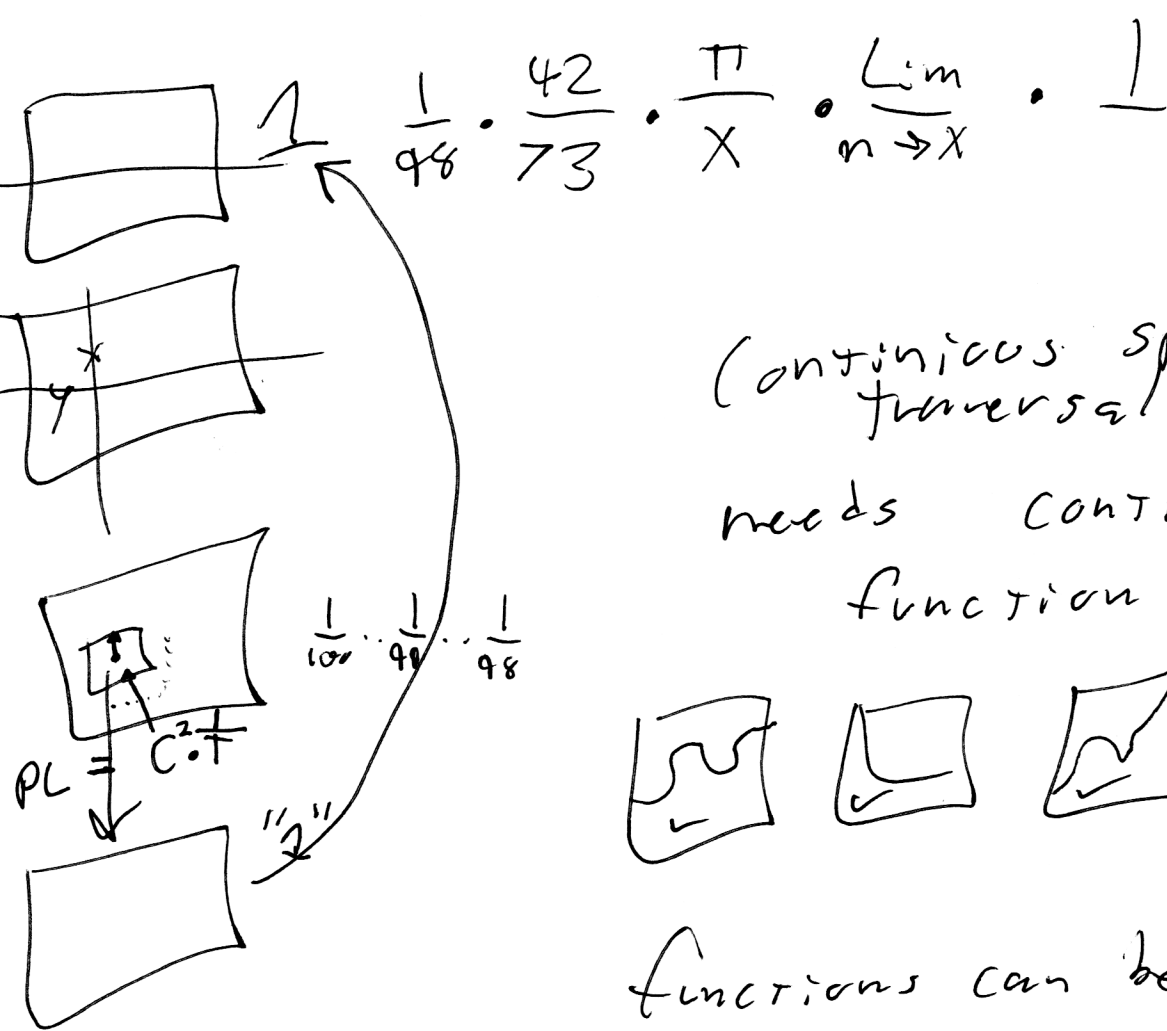 1 1/98 · 42/73 · π/X · Lim/n→X · 1
x
y
Continious sp
traversal
needs cont
function
1/100 .. 1/99 .. 1/98
C²·1/T
PL =
"2"
functions can be